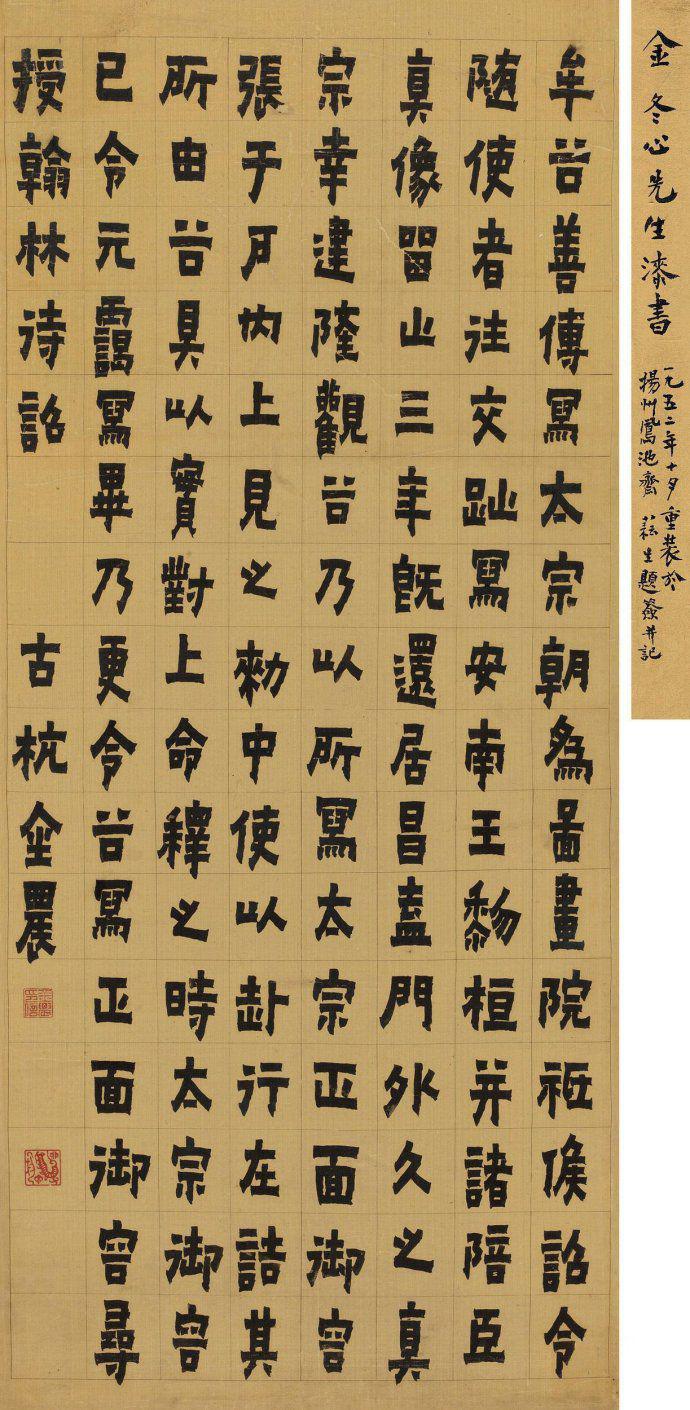 金冬心先生漆書
一九五二年十月重裝於
揚州鳳池齋 耘生題簽并記
牟谷善傳冩太宗朝為啚畫院祗候詔令
随使者往交趾冩安南王黎桓并諸陪臣
真像畱止三年既還居昌盍門外久之真
宗幸建隆觀谷乃以所冩太宗正面御容
張于戶內上見之勑中使以赴行在詰其
所由谷具以實對上命釋之時太宗御容
已令元靄冩畢乃更令谷冩正面御容尋
授翰林待詔 古杭金農
金農印信